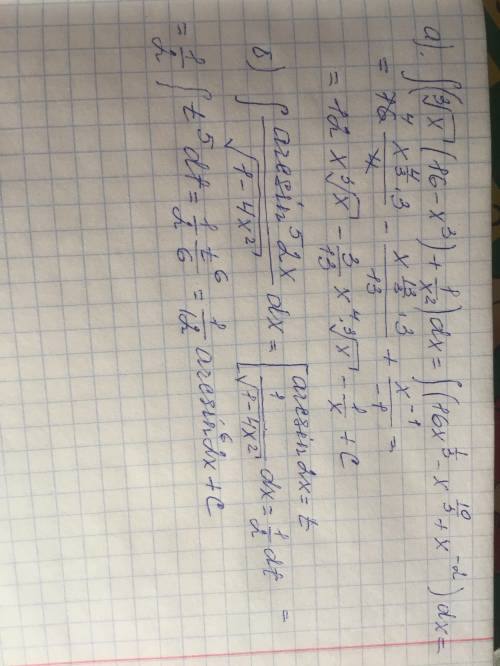 а). ∫(∛x (16 - x³) + 1/x²) dx = ∫(16x^(1/3) - x^(10/3) + x^(-2)) dx =
= 16 x^(4/3)·3/4 - x^(13/3)·3/13 + x^(-1)/(-1) =
= 12 x ∛x - 3/13 x⁴ ∛x - 1/x + C
б) ∫ arcsin⁵2x/√(1-4x²) dx = [arcsin2x = t
1/√(1-4x²) dx = 1/2 dt =
= 1/2 ∫ t⁵ dt = 1/2 t⁶/6 = 1/12 arcsin⁶2x + C